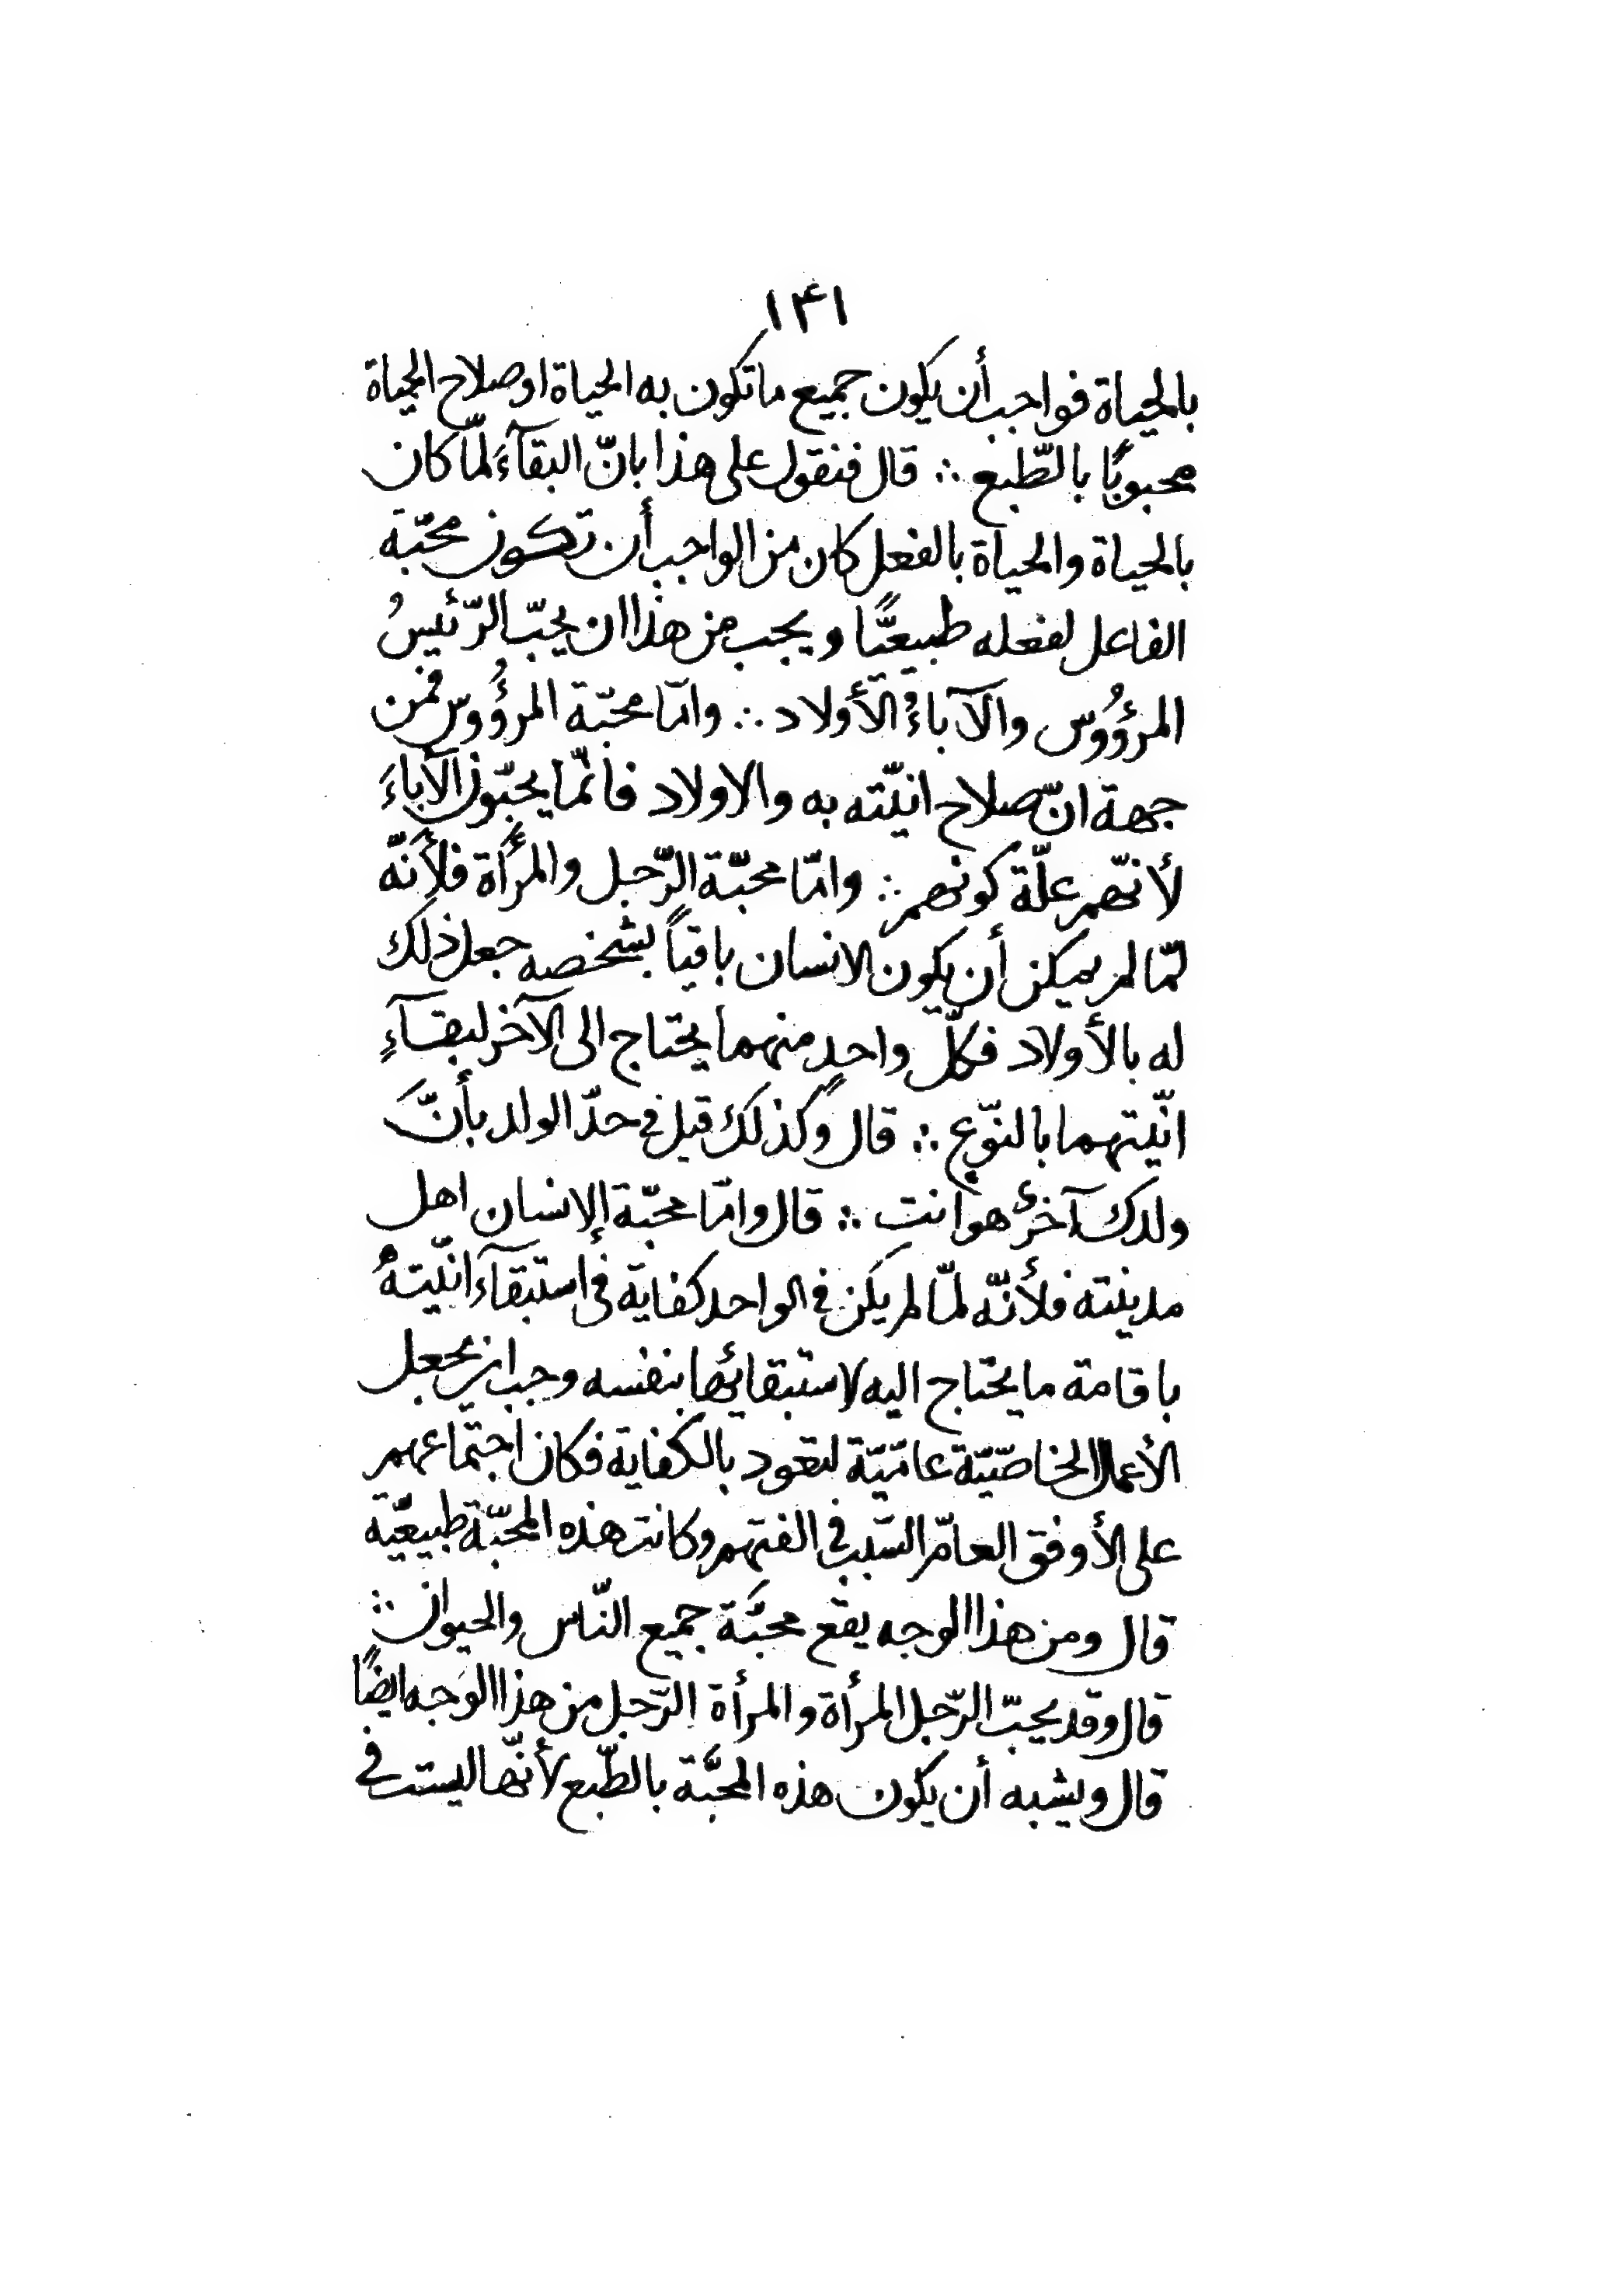 ۱۴۱
بالحياة فواجب أن يكون جميع ما تكون به الحياة او صلاح الحياة
محبوبًا بالطّبع ∴ قال فنقول على هذا بانّ البقآءَ لمّا كان
بالحياة والحياة بالفعل كان من الواجب أن تكون محبّة
الفاعل لفعله طبيعيًّا ويجب من هذا ان يحبّ الرّئيسُ
المرؤُوس والآباءُ الأولاد ∴ وامّا محبّة المرؤُوس فمن
جهة انّ صلاح انيّته به والاولاد فانّما يحبّون الآباءَ
لأنّهم علّة كونهم ∴ وامّا محبّة الرّجل والمرأة فلأنّه
لمّا لم يمكن أن يكون الانسان باقياً بشخصه جعل ذلك
له بالأولاد فكلّ واحدٍ منهما يحتاج الى الآخر لبقآءِ
انّيتهما بالنّوع ∴ قال وكذلك قيل فى حدّ الولد بأنَّ
ولدك آخرُ هو انت ∴ قال وامّا محبّة الإنسان اهل
مدينته فلأنّه لمّا لم يكن فى الواحد كفاية فى استبقآء انّيتهُ
باقامة ما يحتاج اليه لاستبقائها بنفسه وجب ان يجعل
الأعمال الخاصّيّة عامّيّة لتعود بالكفاية فكان اجتماعهم
على الأوفق العامّ السّبب فى الفتهم وكانت هذه المحبّة طبيعيّة
قال ومن هذا الوجه يقع محبَّة جميع النّاس والحيوان ∴
قال وقد يحبّ الرّجل المرأة والمرأة الرّجل من هذا الوَجه ايضًا
قال ويشبه أن يكون هذه المحبَّة بالطّبع لأنّها ليست فى